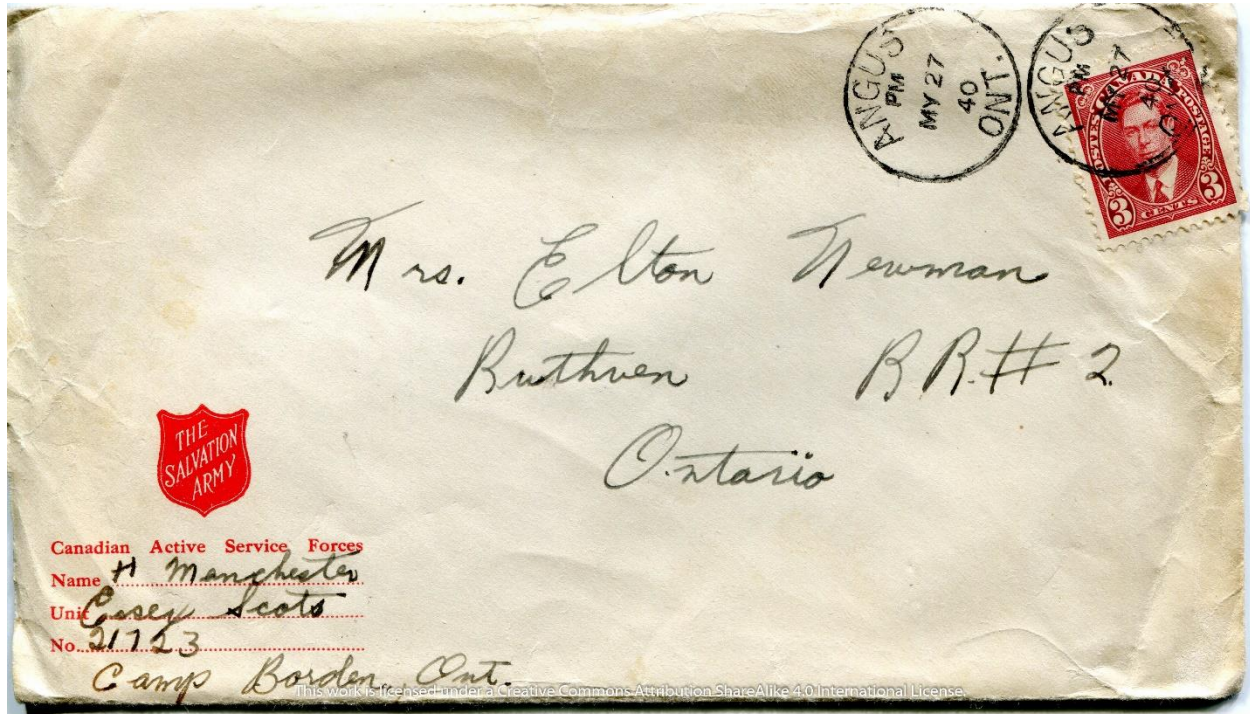 ANGUS
PM
MY 27
40
ONT.
ANGUS
PM
MY 27
40
POSTES CANADA POSTAGE
3 CENTS 3
Mrs. Elton Newman
Ruthven R R. # 2
Ontario
THE
SALVATION
ARMY
Canadian Active Service Forces
Name H Manchester
Unit Essex Scots
No. 21723
Camp Borden, Ont.
This work is licensed under a Creative Commons Attribution ShareAlike 4.0 International License.